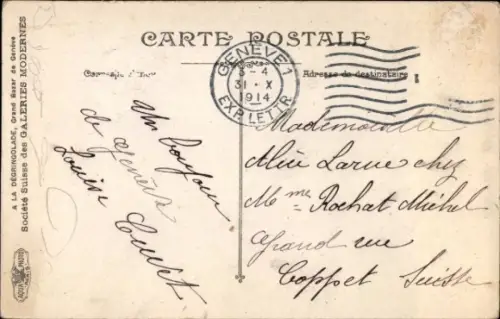 CARTE POSTALE
Adresse du destinataire
GENÈVE 1
3-4
31 · X
1914
EXP. LETTR.
A LA DÉGRINGOLADE, Grand Bazar de Genève
Société Suisse des GALERIES MODERNES
Un bonjour
de Genève
Louise
Mademoiselle
Alice Larue chez
Mme Rochat Michel
Grand rue
Coppet Suisse